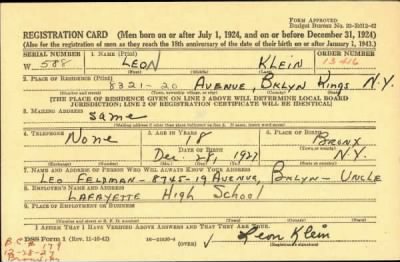 FORM APPROVED
Budget Bureau No. 33-R012-42
REGISTRATION CARD (Men born on or after July 1, 1924, and on or before December 31, 1924)
(Also for the registration of men as they reach the 18th anniversary of the date of their birth on or after January 1, 1943.)
SERIAL NUMBER 1. NAME (Print) ORDER NUMBER
W 588 LEON KLEIN 13416
(First) (Middle) (Last)
2. PLACE OF RESIDENCE (Print)
8321-20 AVENUE, BKLYN KINGS N.Y.
[THE PLACE OF RESIDENCE GIVEN ON LINE 2 ABOVE WILL DETERMINE LOCAL BOARD
JURISDICTION; LINE 2 OF REGISTRATION CERTIFICATE WILL BE IDENTICAL]
3. MAILING ADDRESS
Same
[Mailing address if other than place indicated on line 2. If same, insert word same]
4. TELEPHONE 5. AGE IN YEARS 6. PLACE OF BIRTH
None 18 BRONX
DATE OF BIRTH
Dec. 28, 1927 N.Y.
(Exchange) (Number) (Mo.) (Day) (Yr.) (State or country)
7. NAME AND ADDRESS OF PERSON WHO WILL ALWAYS KNOW YOUR ADDRESS
LEO FELDMAN - 8745-19 AVENUE, BKLYN - UNCLE
8. EMPLOYER'S NAME AND ADDRESS
LAFAYETTE HIGH SCHOOL
9. PLACE OF EMPLOYMENT OR BUSINESS
I AFFIRM THAT I HAVE VERIFIED ABOVE ANSWERS AND THAT THEY ARE TRUE.
DSS Form 1 (Rev. 11-16-42) (OVER) Leon Klein
(Registrant's signature)
12-28-27